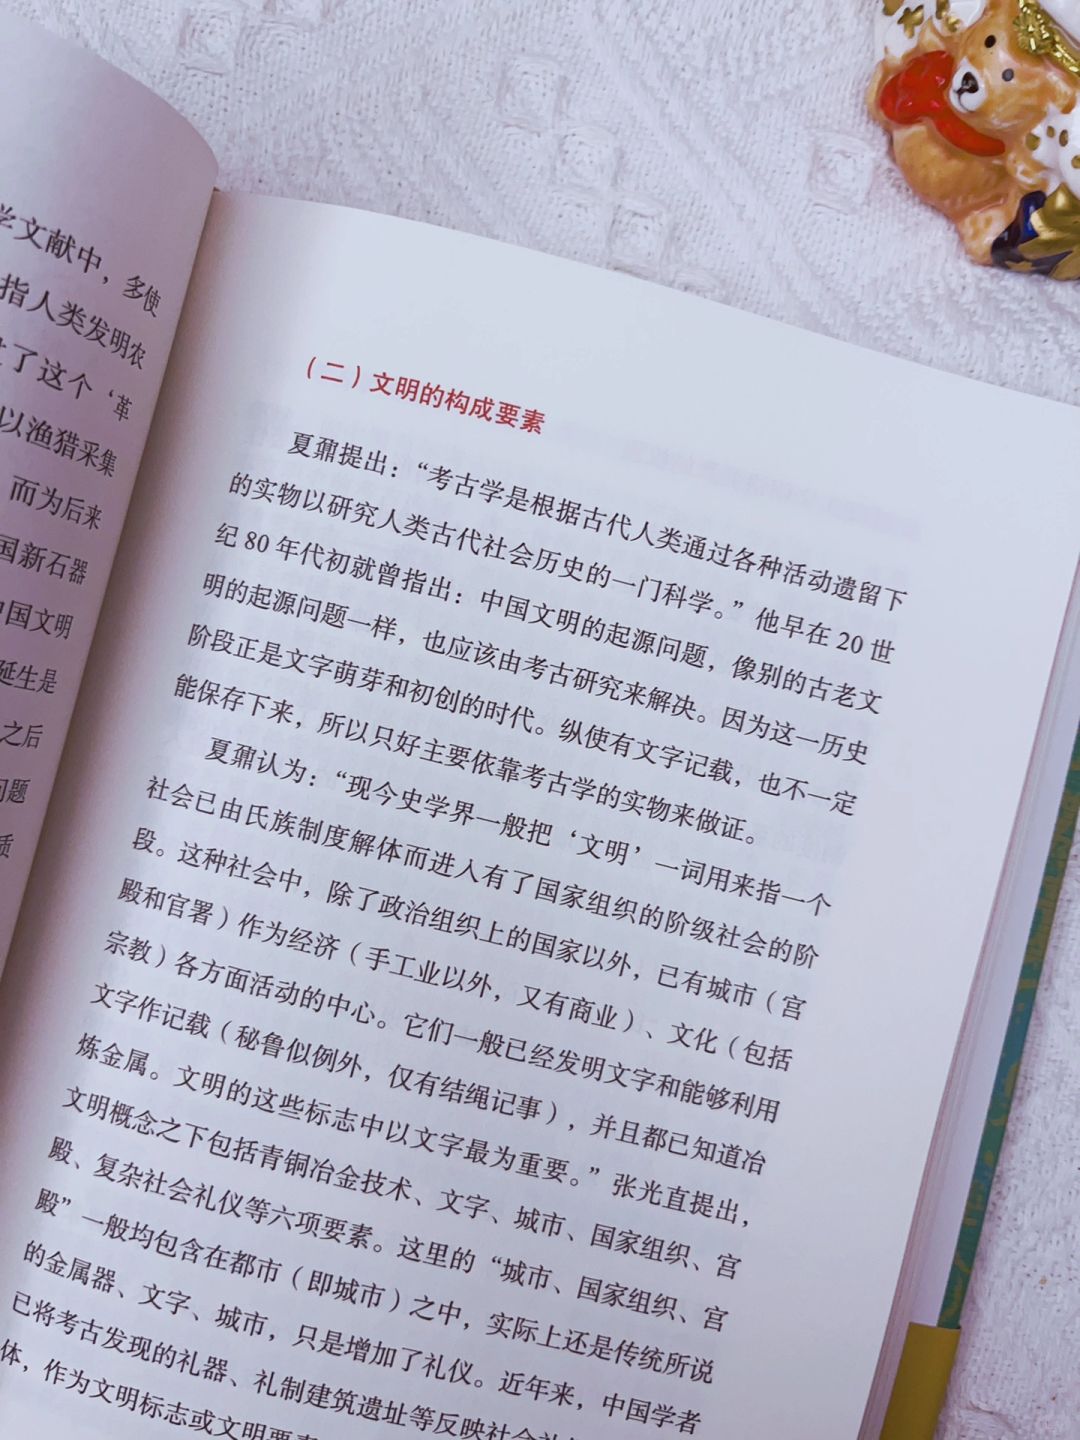 学文献中，多使
指人类发明农
了这个‘革
以渔猎采集
而为后来
国新石器
中国文明
延生是
之后
问题
质
（二）文明的构成要素
夏鼐提出：“考古学是根据古代人类通过各种活动遗留下
的实物以研究人类古代社会历史的一门科学。”他早在20世
纪80年代初就曾指出：中国文明的起源问题，像别的古老文
明的起源问题一样，也应该由考古研究来解决。因为这一历史
阶段正是文字萌芽和初创的时代。纵使有文字记载，也不一定
能保存下来，所以只好主要依靠考古学的实物来做证。
夏鼐认为：“现今史学界一般把‘文明’一词用来指一个
社会已由氏族制度解体而进入有了国家组织的阶级社会的阶
段。这种社会中，除了政治组织上的国家以外，已有城市（宫
殿和官署）作为经济（手工业以外，又有商业）、文化（包括
宗教）各方面活动的中心。它们一般已经发明文字和能够利用
文字作记载（秘鲁似例外，仅有结绳记事），并且都已知道冶
炼金属。文明的这些标志中以文字最为重要。”张光直提出，
文明概念之下包括青铜冶金技术、文字、城市、国家组织、宫
殿、复杂社会礼仪等六项要素。这里的“城市、国家组织、宫
殿”一般均包含在都市（即城市）之中，实际上还是传统所说
的金属器、文字、城市，只是增加了礼仪。近年来，中国学者
已将考古发现的礼器、礼制建筑遗址等反映社会
体，作为文明标志或文明要